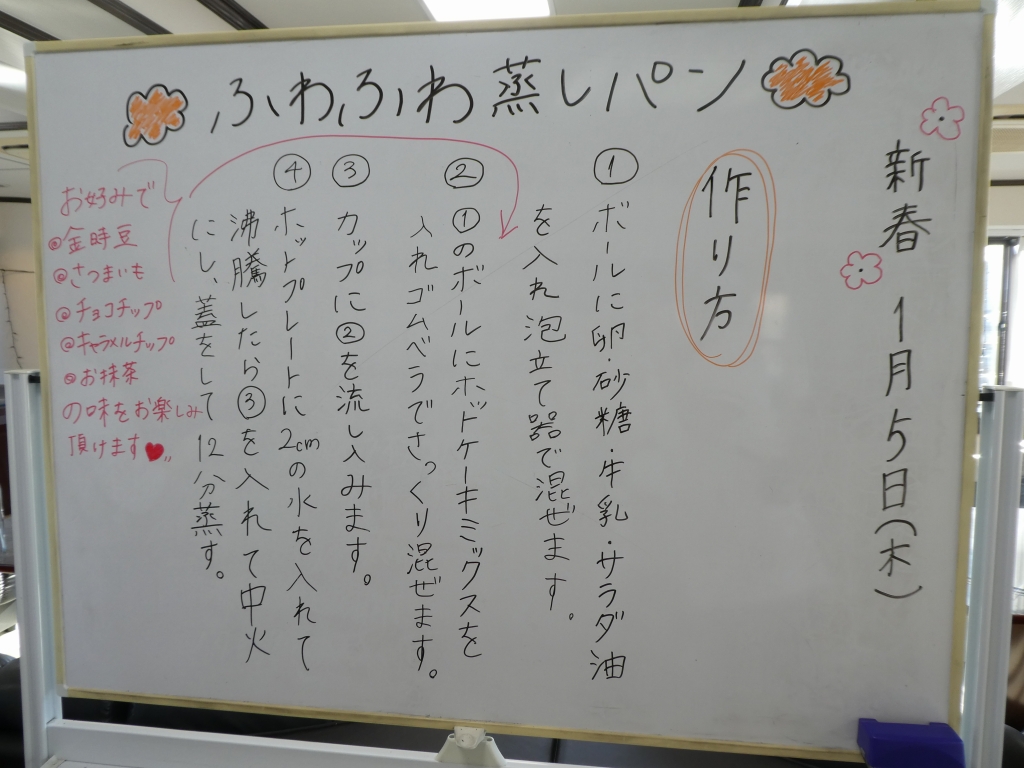 ふわふわ蒸しパン
新春 1月5日(木)
作り方
① ボールに卵・砂糖・牛乳・サラダ油
を入れ泡立て器で混ぜます。
② ①のボールにホットケーキミックスを
入れゴムベラでさっくり混ぜます。
③ カップに②を流し入みます。
④ ホットプレートに2cmの水を入れて
沸騰したら③を入れて中火
にし、蓋をして12分蒸す。
お好みで
@金時豆
@さつまいも
@チョコチップ
@キャラメルチップ
@お抹茶
の味をお楽しみ
頂けます